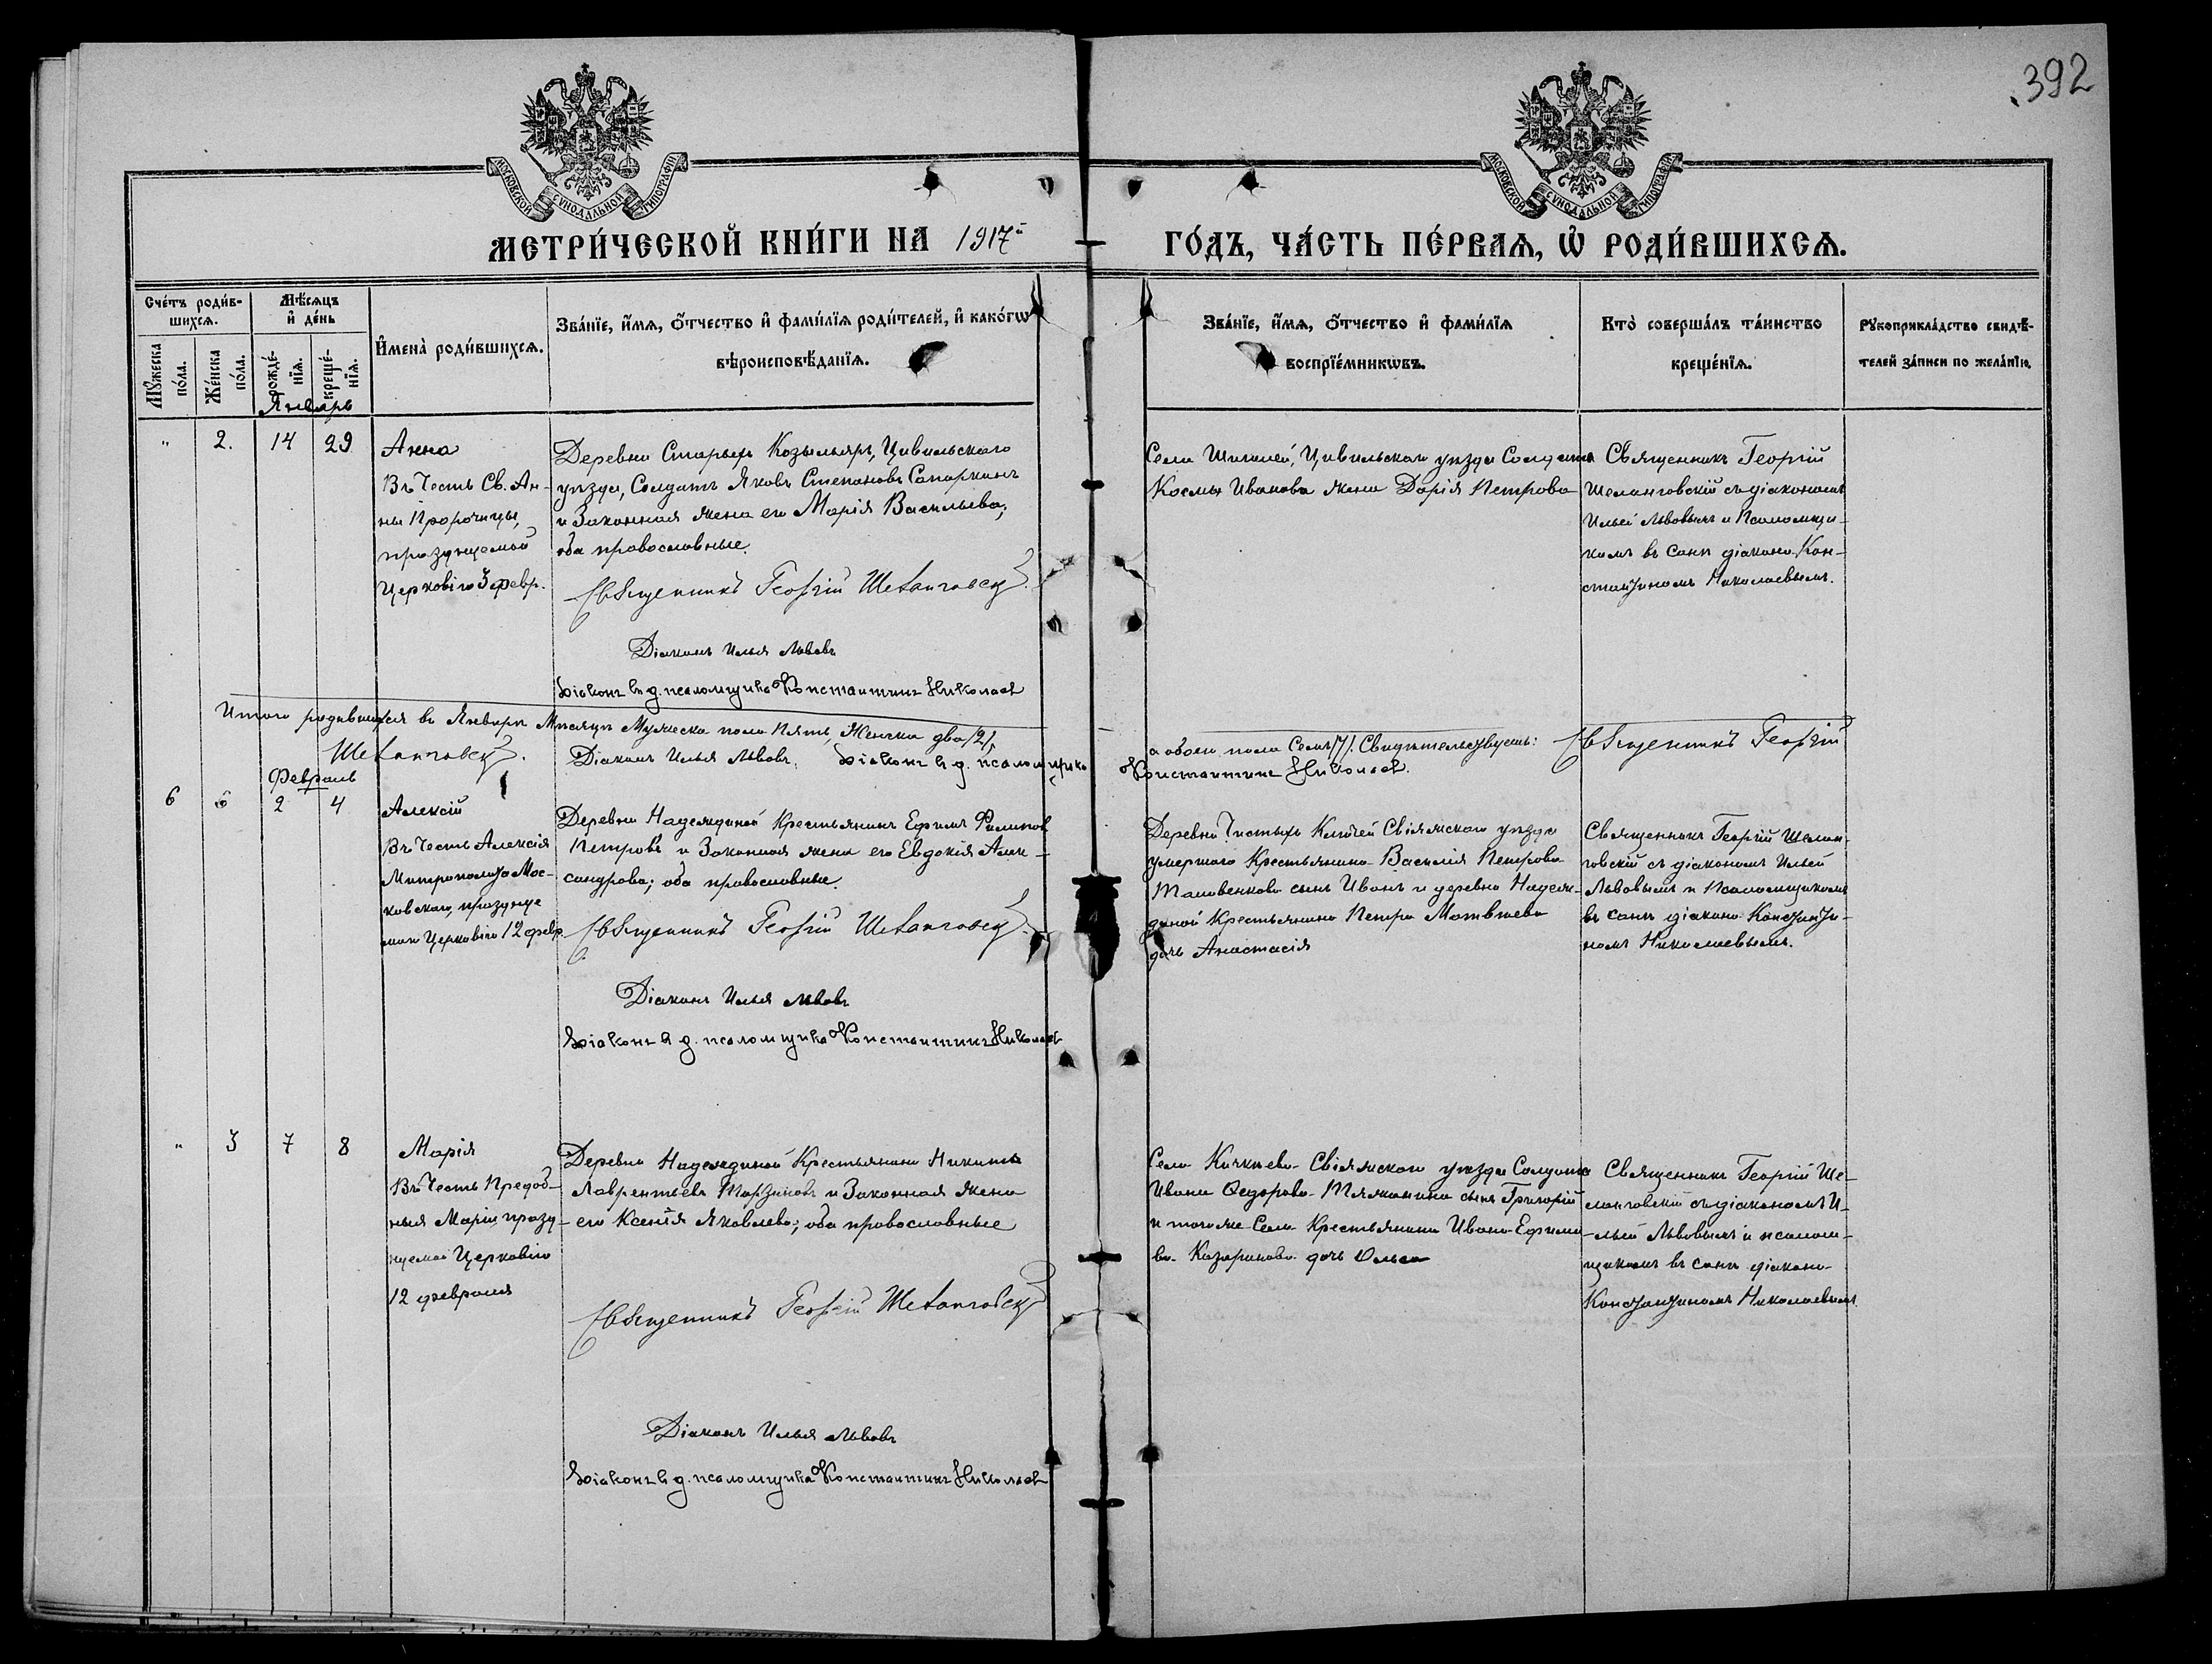 392
МОСКОВСКОЙ СѴНОДАЛЬНОЙ ТИПОГРАФІИ
МОСКОВСКОЙ СѴНОДАЛЬНОЙ ТИПОГРАФІИ
МЕТРИ́ЧЕСКОЙ КНИ́ГИ НА 1917й ГО́ДЪ, ЧА́СТЬ ПЕ́РВАѦ, Ѡ҆ РОДИ́ВШИХСѦ.
Сче́тъ роди́в-
шихсѧ.
Мѣ́сѧцъ
и҆ де́нь
Мꙋ́жеска
по́ла.
Же́нска
по́ла.
рожде́-
нїѧ.
креще́-
нїѧ.
И҆мена̀ роди́вшихсѧ.
Зва́нїе, и҆́мѧ, ѻ҆́тчество и҆ фами́лїѧ роди́телей, и҆ како́гѡ
вѣроисповѣ́данїѧ.
Зва́нїе, и҆́мѧ, ѻ҆́тчество и҆ фами́лїѧ
воспрїе́мникѡвъ.
Кто̀ соверша́лъ та́инство
креще́нїѧ.
Рꙋкоприкла́дство свидѣ́-
телей за́писи по жела́нїю.
Январь
" 2. 14 29
Анна
Въ Честь Св. Ан-
ны Пророчицы,
празднуемой
Церковію 3 февр.
Деревни Старыхъ Козыльяръ, Цивильскаго
уѣзда, Солдатъ Яковъ Степановъ Сапаркинъ
и Законная жена его Марія Васильева;
оба православные.
Священникъ Георгій Шеланговск
Діаконъ Илья Львовъ
Діаконъ и д. псаломщика Константинъ Николаев
Села Шигалей, Цивильскаго уѣзда Солдата
Космы Иванова жена Дарія Петрова
Священникъ Георгій
Шеланговскій съ діакономъ
Ильей Львовымъ и Псаломщи-
комъ въ санѣ діакона Кон-
стантиномъ Николаевымъ.
Итого родившихся въ Январѣ Мѣсяцѣ Мужеска пола Пять, Женска два /2/, а обоего пола Семь /7/. Свидѣтельствуемъ: Священникъ Георгій
Шеланговск. Діаконъ Илья Львовъ. Діаконъ и д. псаломщика Константинъ Николаев.
Февраль
6 2 4
Алексій
Въ Честь Алексія
Митрополита Мос-
ковскаго, праздуе
маго Церковію 12 февр.
Деревни Надеждиной Крестьянинъ Ефимъ Филипов
Петровъ и Законная жена его Евдокія Алек-
сандрова; оба православные.
Священникъ Георгій Шеланговск
Діаконъ Илья Львовъ
Діаконъ и д. псаломщика Константинъ Николаев
Деревни Чистыхъ Ключей Свіяжскаго уѣзда
умершаго Крестьянина Василія Петрова
сынъ Иванъ и деревни Надеж-
диной Крестьянина Петра Матвѣева
дочь Анастасія
Священникъ Георгій Шелан-
говскій съ діакономъ Ильей
Львовымъ и Псаломщикомъ
въ санѣ діакона Константи-
номъ Николаевымъ.
" 3 7 8
Марія
Въ Честь Преподоб-
ныя Маріи празд-
нуемой Церковію
12 февраля
Деревни Надеждиной Крестьянинъ Никита
Лаврентьевъ и Законная жена
его Ксенія Яковлева; оба православные
Священникъ Георгій Шеланговск
Діаконъ Илья Львовъ
Діаконъ и д. псаломщика Константинъ Николаев
Села Кичкѣева Свіяжскаго уѣзда Солдата
Ивана Ѳедорова сынъ Григорій
и того же Села Крестьянина Ивана Ефимо-
ва Казаринова дочь Ольга
Священникъ Георгій Ше-
ланговскій съ діакономъ И-
льей Львовымъ и псалом-
щикомъ въ санѣ діакона
Константиномъ Николаевымъ.